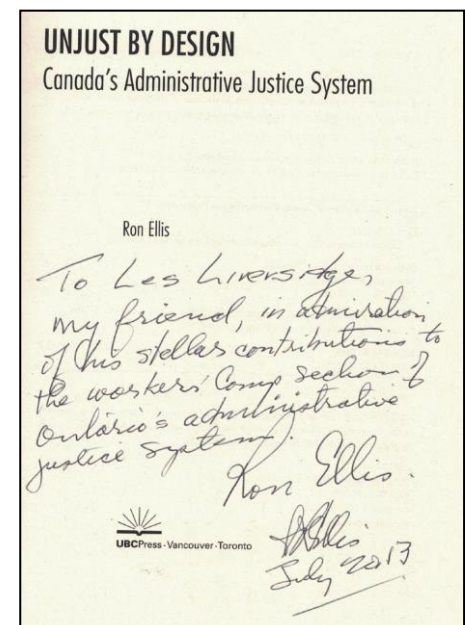 UNJUST BY DESIGN
Canada's Administrative Justice System
Ron Ellis
To Les Liversidge,
my friend, in admiration
of his stellar contributions to
the workers' Comp section of
Ontario's administrative
justice system.
Ron Ellis.
UBCPress · Vancouver · Toronto
Ellis
July 2013